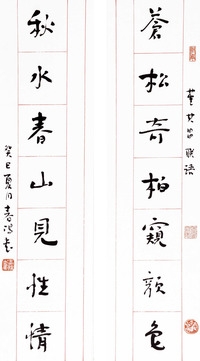 董其昌聯語
蒼松奇柏窺顏色
秋水春山見性情
癸巳夏月